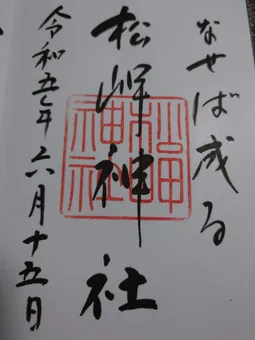 なせば成る
松岬神社
令和五年六月十五日